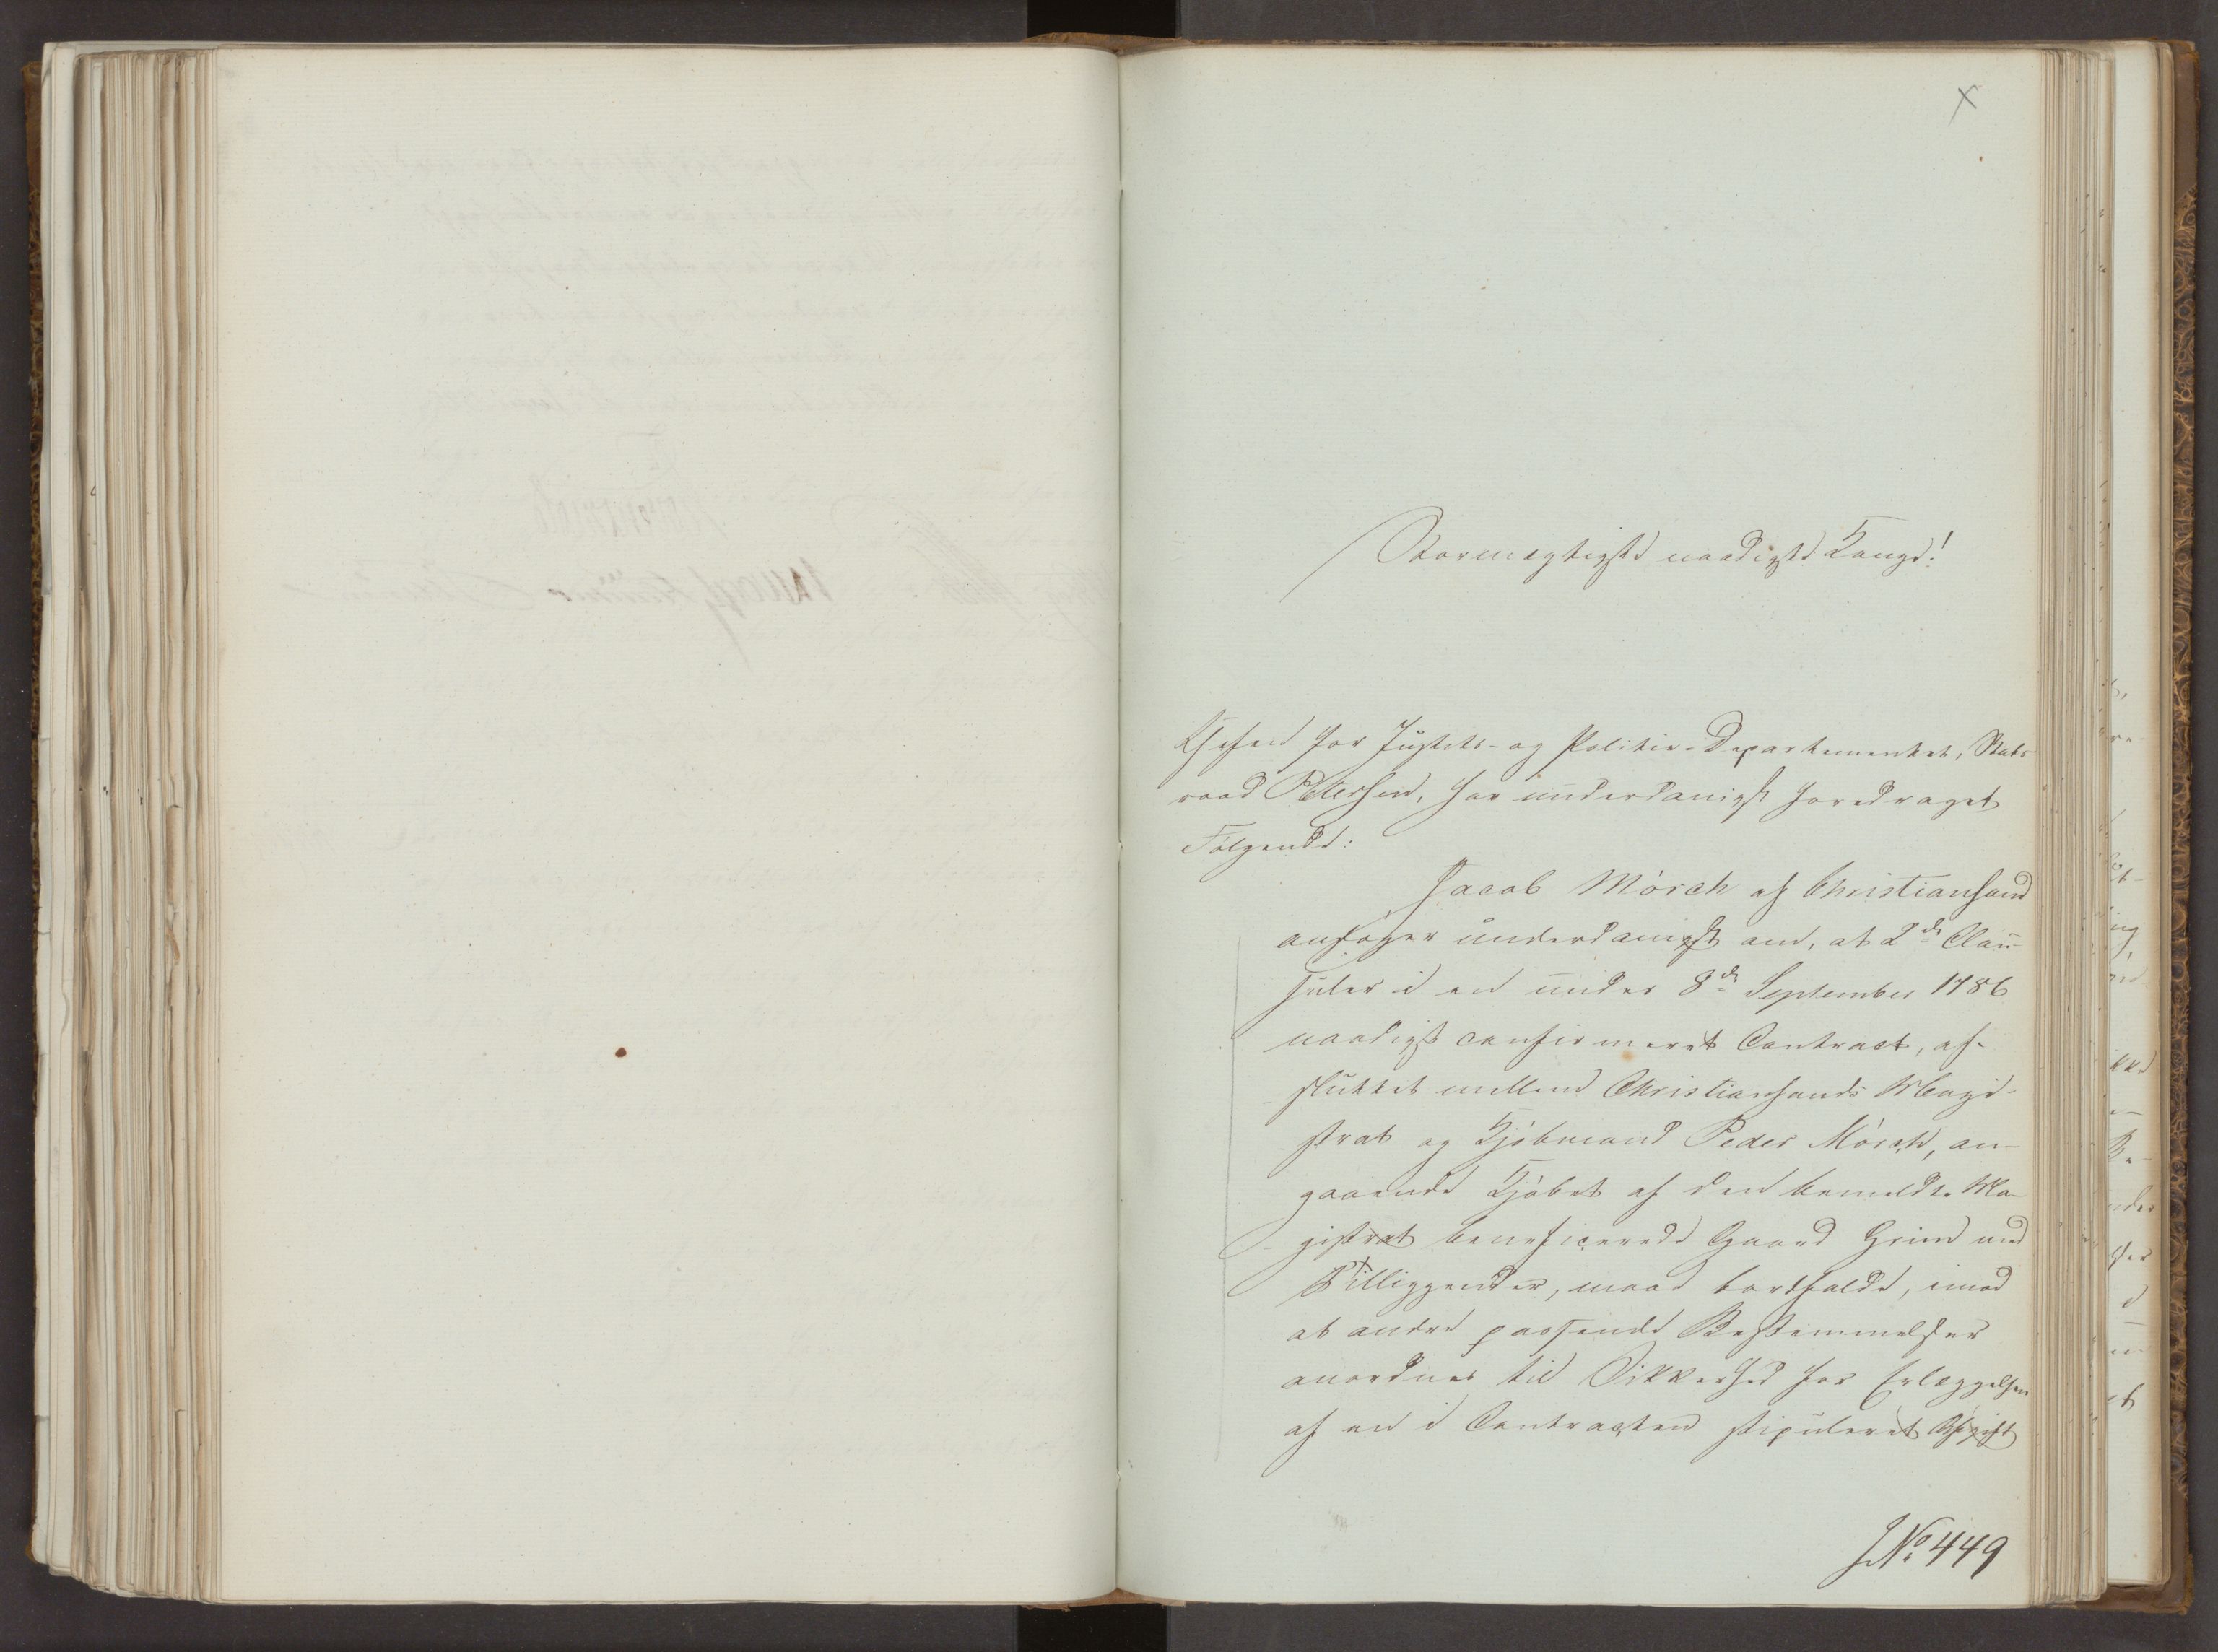 X
Stormægtigste naadigste Konge!
Chefen for Justits- og Politie-Departementet, Stats-
raad Petersen, har underdanigst foredraget
Følgende:
Jacob Mörch af Christiansand
ansøger underdanigst om, at 2de Clau-
suler i en under 8de September 1786
naadigst confirmeret Contract, af-
sluttet mellem Christiansands Magi-
strat og Kjøbmand Peder Mörch, an-
gaaende Kjøbet af den bemeldte Ma-
gistrat beneficerede Gaard Grim med
Tilliggender, maae bortfalde, imod
at andre passende Bestemmelser
anordnes til Sikkerhed for Erlæggelsen
af en i Contracten stipuleret Afgift
J No 449